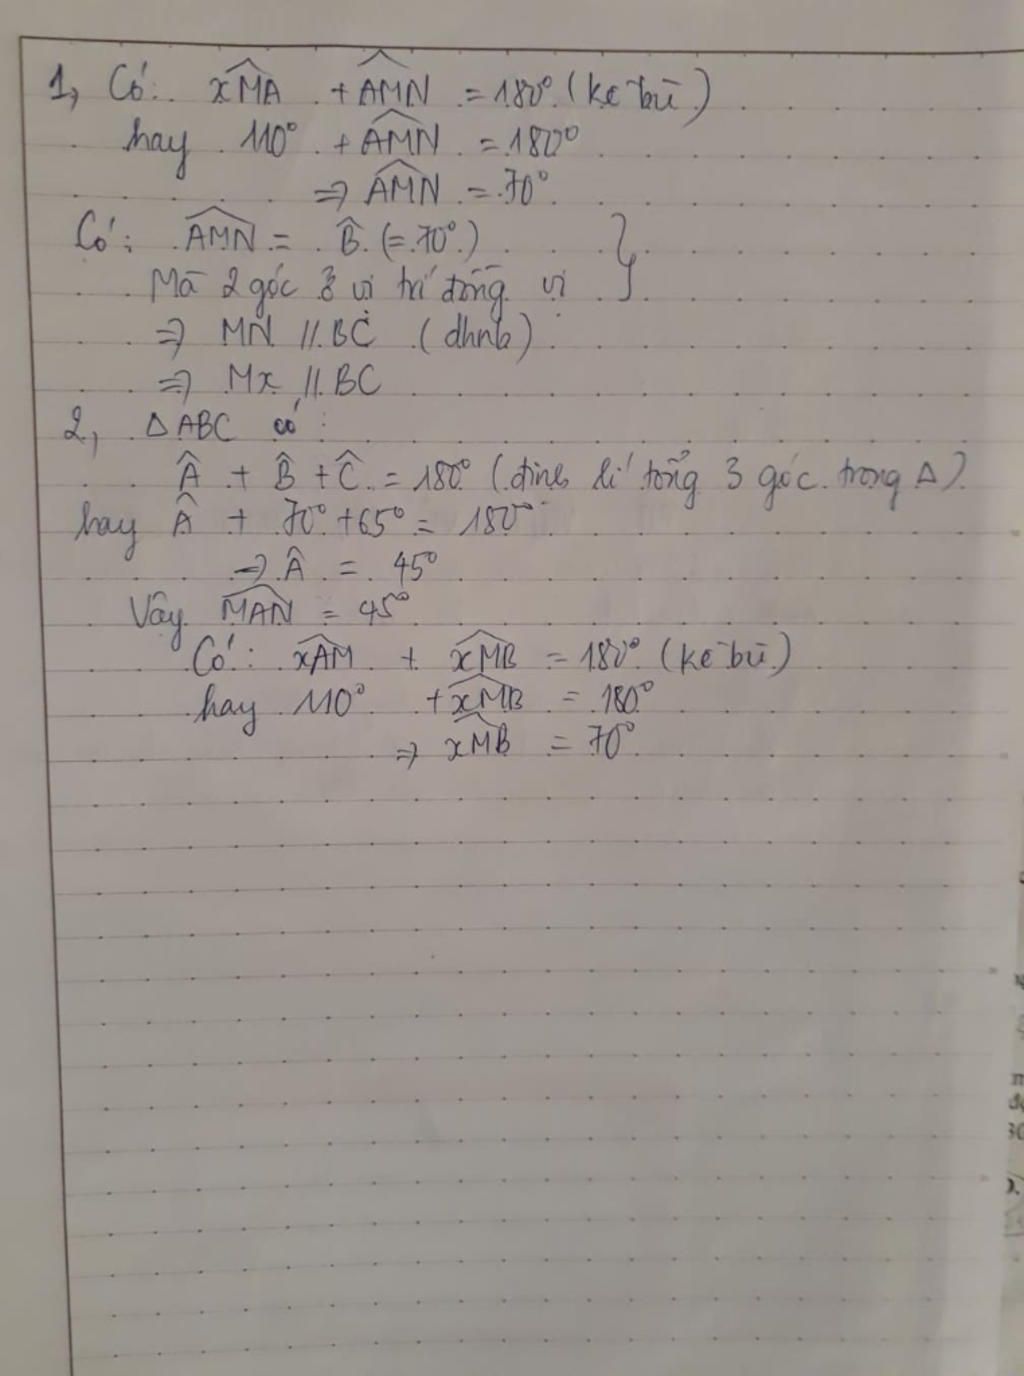 1, Có: xMA + AMN = 180° (kề bù)
hay 110° + AMN = 180°
⇒ AMN = 70°
Có: AMN = B̂ (= 70°)
Mà 2 góc ở vị trí đồng vị
⇒ MN // BC (dhnb)
⇒ Mx // BC
2, △ABC có:
Â + B̂ + Ĉ = 180° (định lí tổng 3 góc trong △)
hay Â + 70° + 65° = 180°
⇒ Â = 45°
Vậy MAN = 45°
Có: xAM + xMB = 180° (kề bù)
hay 110° + xMB = 180°
⇒ xMB = 70°